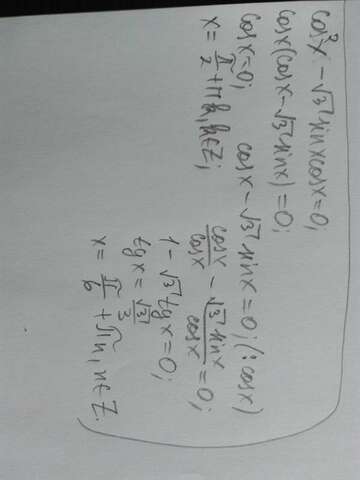 cos²x - √3 sinxcosx=0;
cosx(cosx-√3 sinx)=0;
cosx=0;
x= π/2 +πk, k∈Z;
cosx-√3 sinx=0; (:cosx)
cosx/cosx - √3 sinx/cosx =0;
1-√3 tgx=0;
tgx= √3/3
x= π/6 +πn, n∈Z.